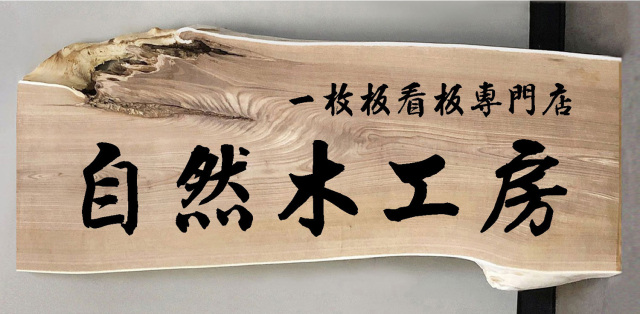 一枚板看板専門店
自然木工房